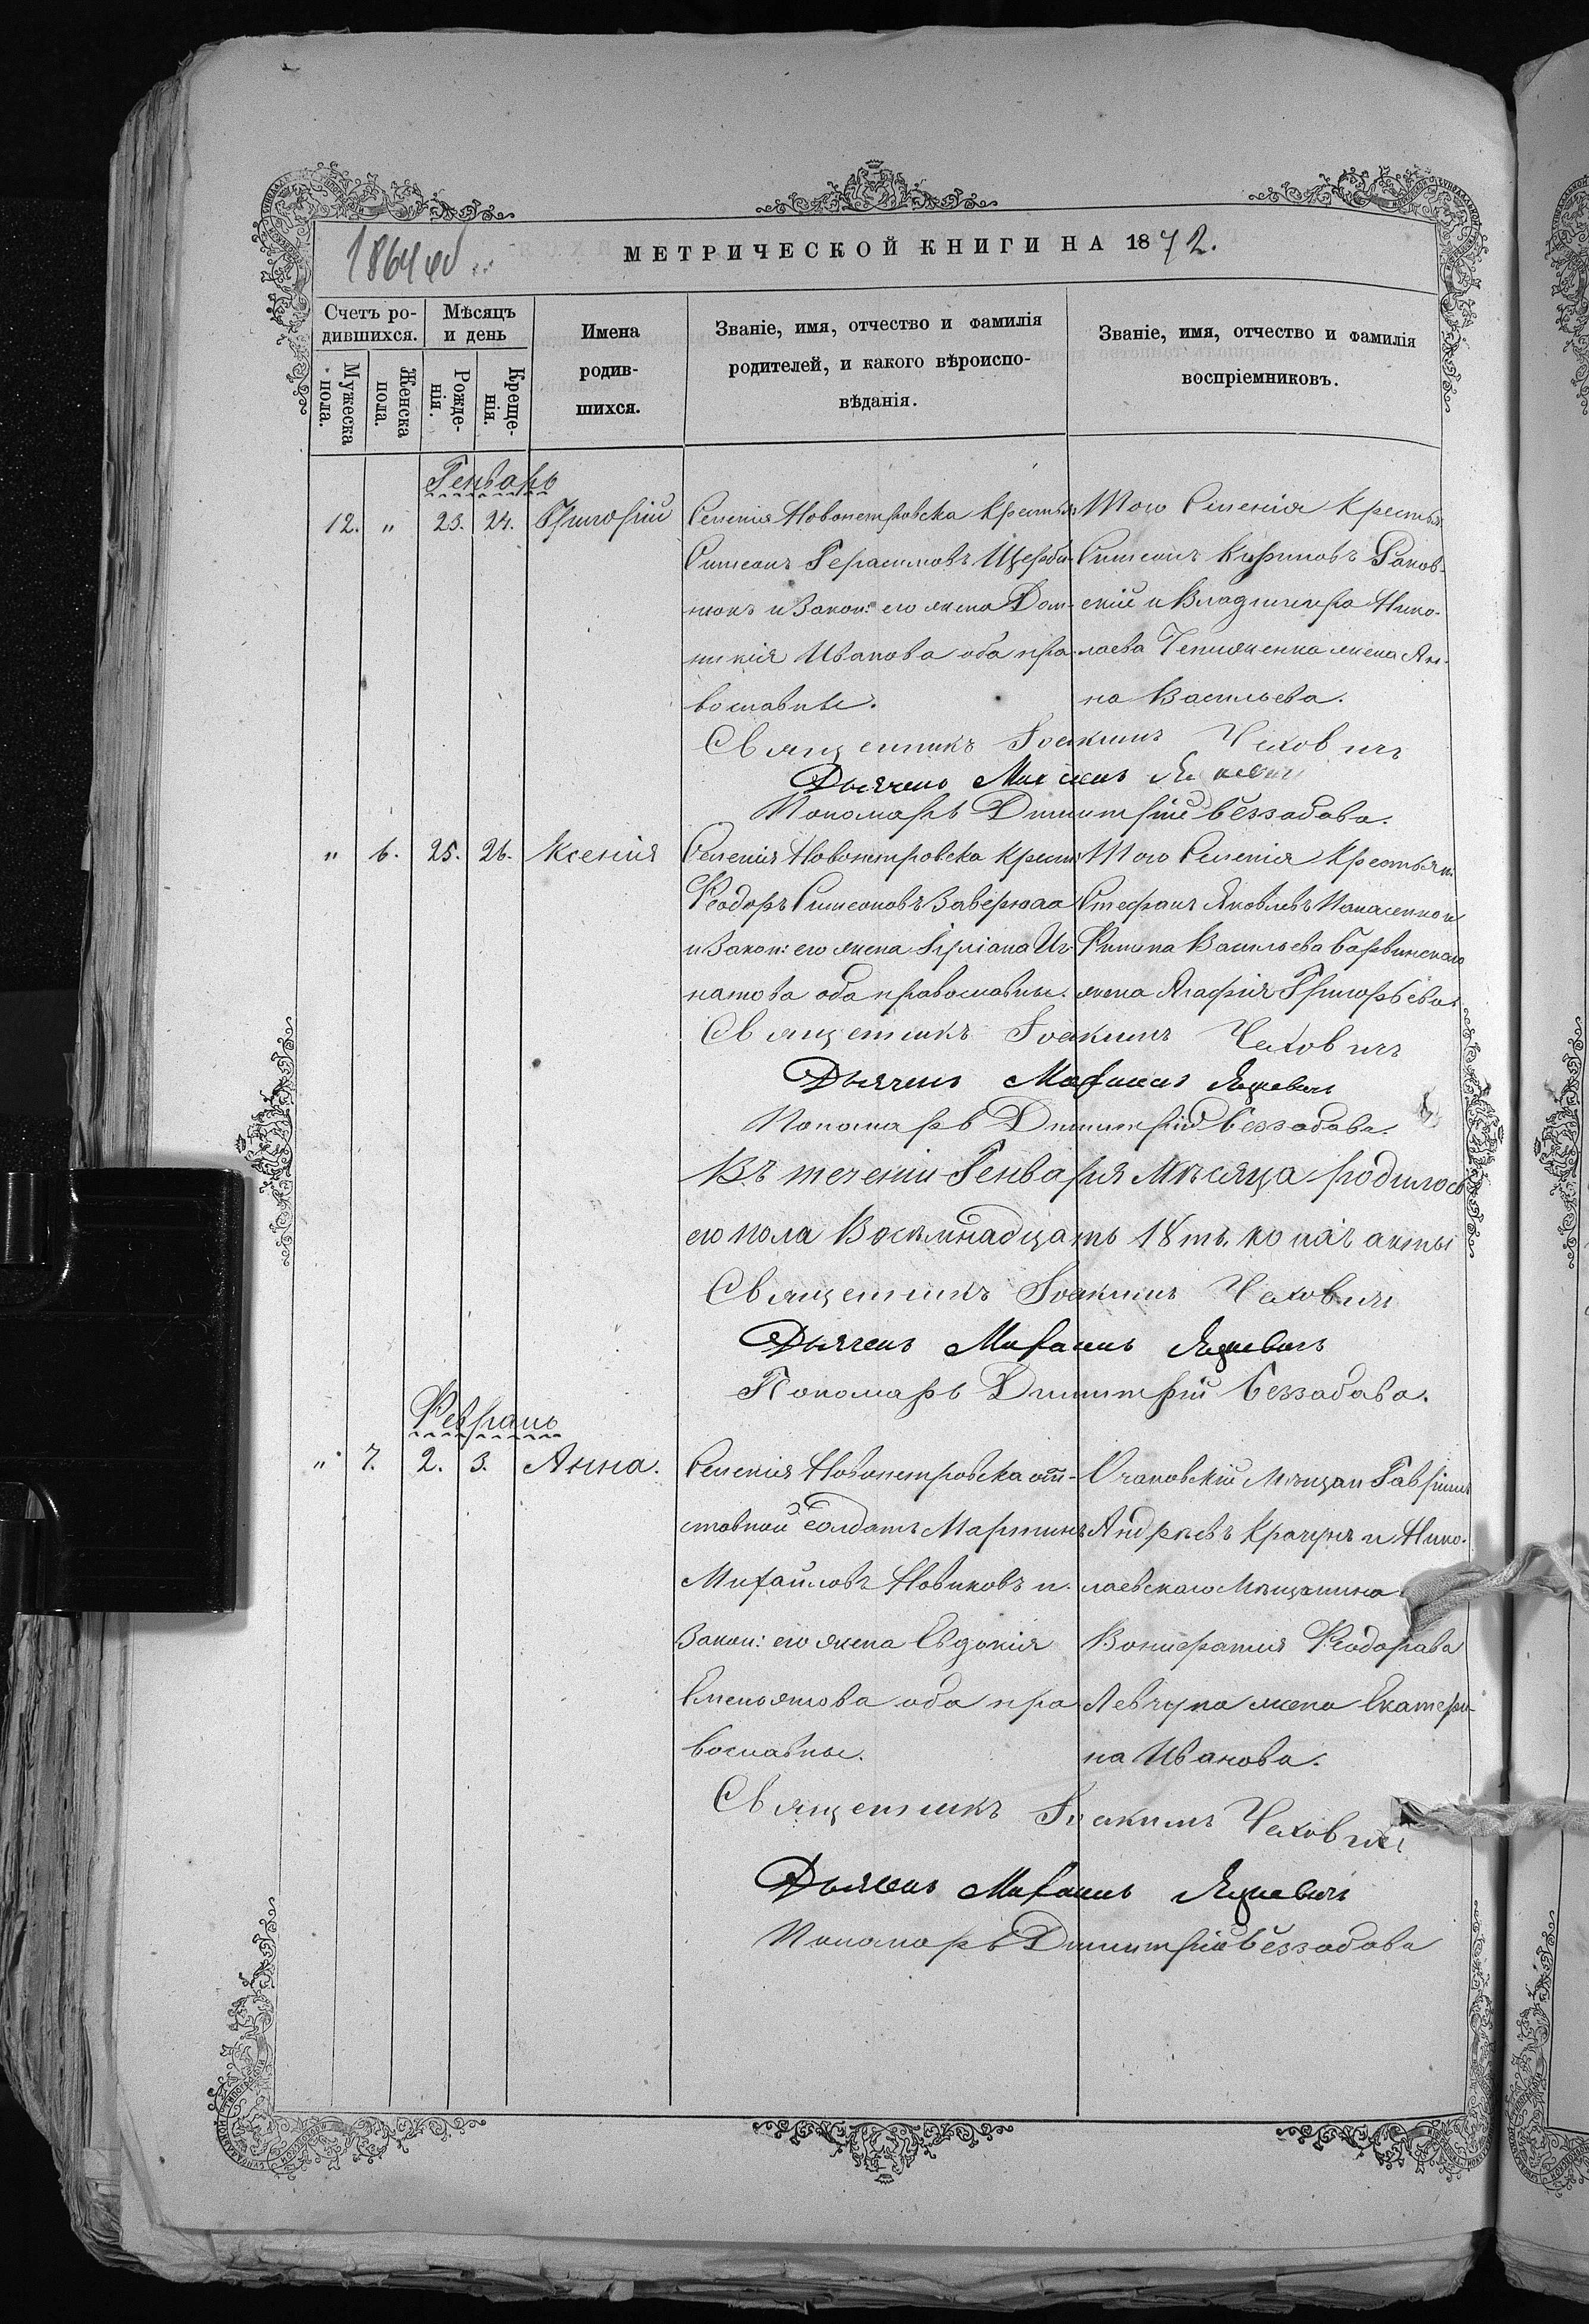 1864 об
МЕТРИЧЕСКОЙ КНИГИ НА 1872.
Счетъ ро-
дившихся.
Мѣсяцъ
и день
Мужеска
пола.
Женска
пола.
Рожде-
нія.
Креще-
нія.
Имена
родив-
шихся.
Званіе, имя, отчество и фамилія
родителей, и какого вѣроиспо-
вѣданія.
Званіе, имя, отчество и фамилія
воспріемниковъ.
Генварь
12. " 23. 24. Григорій
Селенія Новопетровска Крестья
Симеонъ Герасимовъ Щерби-
нокъ и Закон: его жена Дом-
никія Иванова оба пра-
вославные.
Того Селенія Крестья
Симеонъ Раков-
скій и Владимира Нико-
лаева жена Ан-
на Васильева.
Священникъ Іоакимъ Чехович
Дьячекъ Михаилъ
Пономарь Димитрій Беззабава.
" 6. 25. 26. Ксенія
Селенія Новопетровска Крест
Ѳеодоръ Симеоновъ Заверюха
и Закон: его жена Іуліана Иг-
натова оба православные.
Того Селенія Крестьян
Стефанъ Яковлевъ Панасенко и
Филипа Васильева Барвинскаго
жена Агафія Григорьева.
Священникъ Іоакимъ Чехович
Дьячекъ Михаилъ Яцкевичъ
Пономарь Димитрій Беззабава.
Въ теченіи Генваря Мѣсяца родилось
его пола Восемнадцать 18ть.
Священникъ Іоакимъ Чехович
Дьячекъ Михаилъ Яцкевичъ
Пономарь Димитрій Беззабава.
Февраль
" 7. 2. 3. Анна.
Селенія Новопетровска от-
ставной Солдатъ Мартинъ
Михайловъ Новиковъ и
Закон: его жена Евдокія
Емельянова оба пра
вославные.
Очаковскій Мѣщан Гавріилъ
Андреевъ Крачунъ и Нико-
лаевскаго Мѣщанина
Ѳеодорава
Левчука жена Екатери-
на Иванова.
Священникъ Іоакимъ Чехович
Дьячекъ Михаилъ Яцкевичъ
Пономарь Димитрій Беззабава